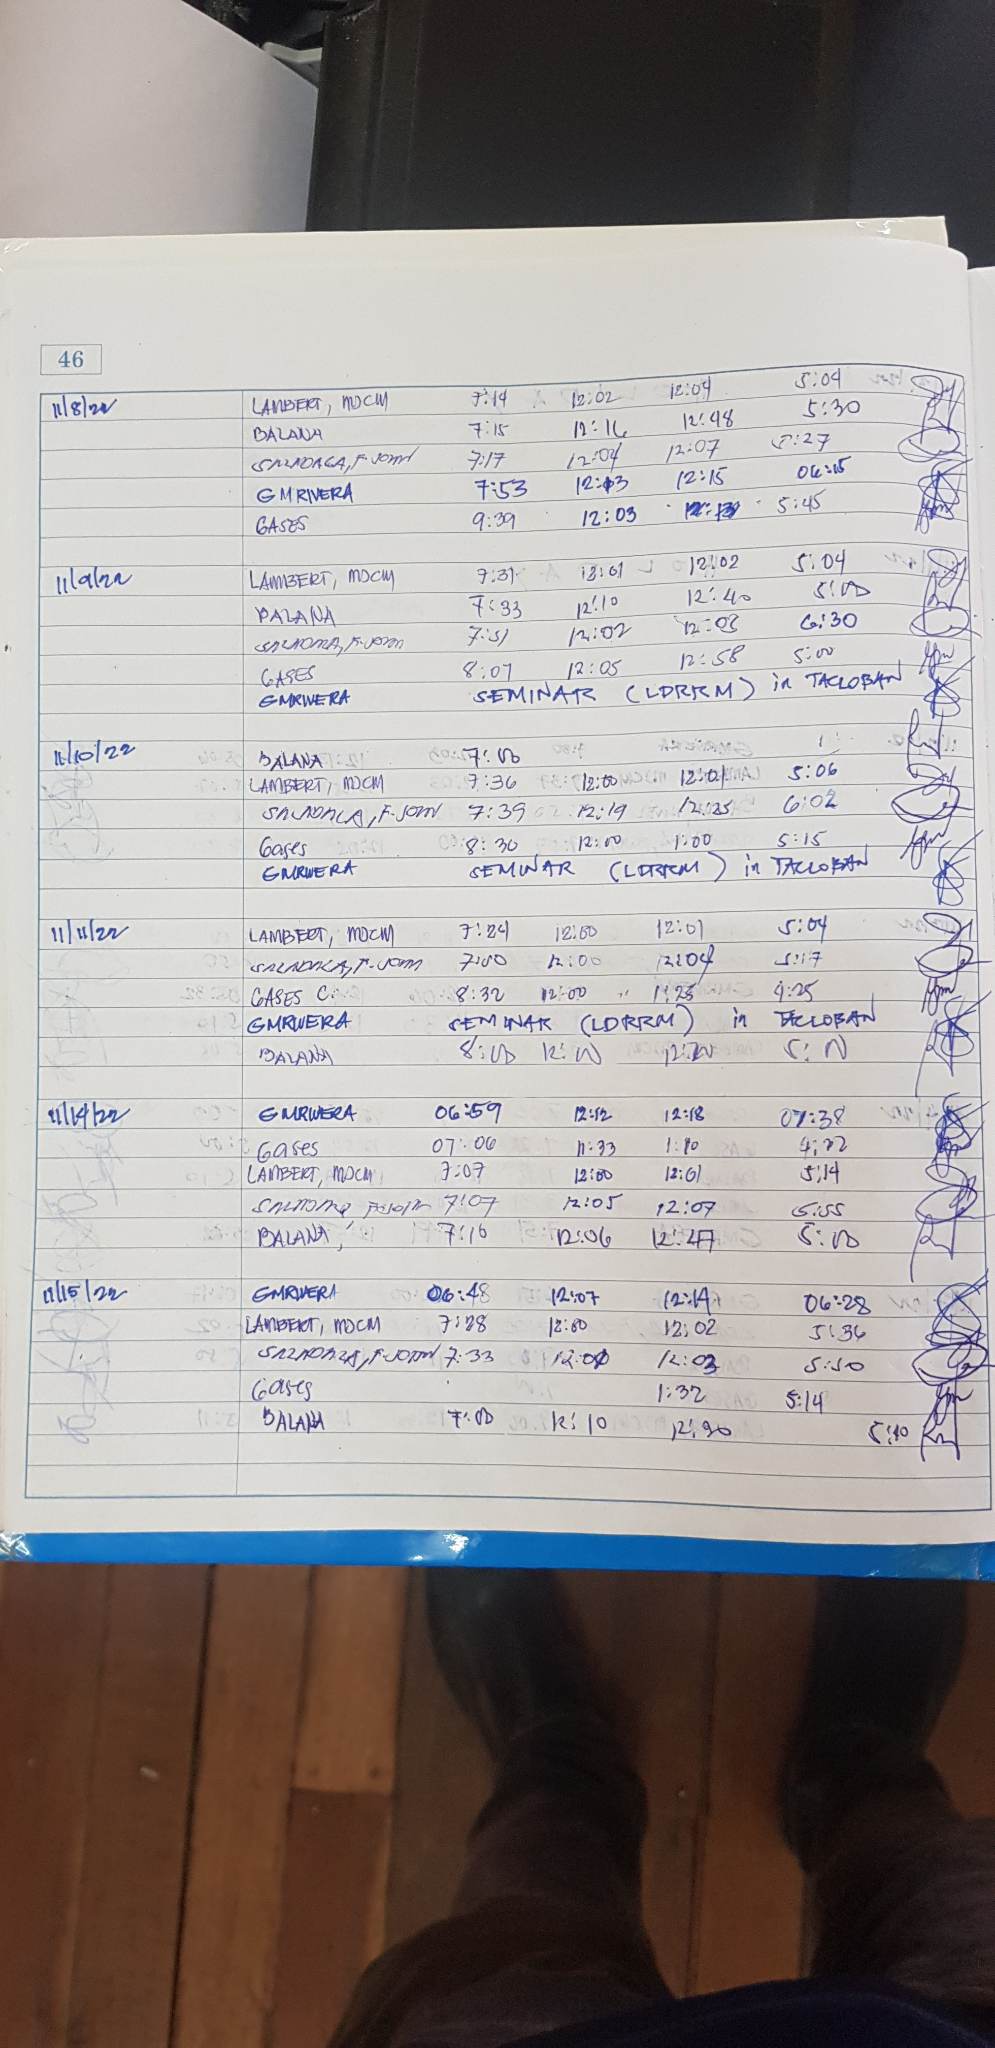 46
11/8/22 LAMBERT, MDCM 7:14 12:02 12:04 5:04
BALANA 7:15 12:16 12:48 5:30
7:17 12:04 12:07 5:27
GMRIVERA 7:53 12:13 12:15 06:15
GASES 9:39 12:03 5:45
11/9/22 LAMBERT, MDCM 7:31 12:01 12:02 5:04
BALANA 7:33 12:10 12:40 5:00
7:51 12:02 12:03 6:30
GASES 8:07 12:05 12:58 5:00
GMRIVERA SEMINAR (LDRRM) in TACLOBAN
11/10/22 BALANA 7:00
LAMBERT, MDCM 7:36 12:00 12:01 5:06
7:39 12:19 12:25 6:02
Gases 8:30 12:00 1:00 5:15
GMRIVERA SEMINAR (LDRRM) in TACLOBAN
11/11/22 LAMBERT, MDCM 7:24 12:00 12:01 5:04
7:00 12:00 12:04 5:17
GASES C. 8:32 12:00 1:25 4:25
GMRIVERA SEMINAR (LDRRM) in TACLOBAN
BALANA 8:00
11/14/22 GMRIVERA 06:59 12:12 12:18 07:38
Gases 07:06 11:33
LAMBERT, MDCM 7:07 12:00 12:01 5:14
7:07 12:05 12:07
BALANA 7:10 12:06 12:47 5:00
11/15/22 GMRIVERA 06:48 12:07 12:14 06:28
LAMBERT, MDCM 7:28 12:00 12:02 5:36
7:33 12:03 5:50
Gases 1:32 5:14
BALANA 7:00 12:10 5:10